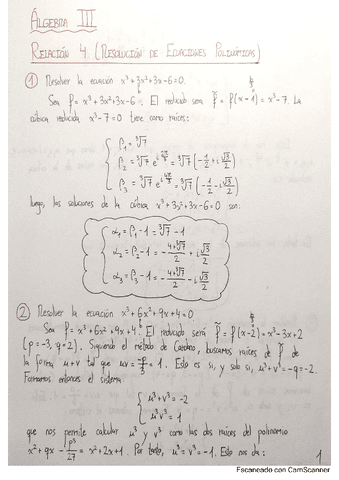 ÁLGEBRA III
RELACIÓN 4. (RESOLUCIÓN DE ECUACIONES POLINÓMICAS)
① Resolver la ecuación x³+3x²+3x-6=0.
Sea f = x³+3x²+3x-6. El reducido será f̃ = f(x-1) = x³-7. La
cúbica reducida x³-7=0 tiene como raíces:
β₁ = ∛7
β₂ = ∛7 e^(i 2π/3) = ∛7 (-1/2 + i √3/2)
β₃ = ∛7 e^(i 4π/3) = ∛7 (-1/2 - i √3/2)
luego, las soluciones de la cúbica x³+3x²+3x-6=0 son:
α₁ = β₁-1 = ∛7 - 1
α₂ = β₂-1 =
α₃ = β₃-1 =
② Resolver la ecuación x³+6x²+9x+4=0.
Sea f = x³+6x²+9x+4. El reducido será f̃ = f(x-2) = x³-3x+2
(p=-3, q=2). Siguiendo el método de Cardano, buscamos raíces de f̃ de
la forma u+v tal que uv = -p/3 = 1. Esto es si, y solo si, u³+v³ = -q = -2.
Formamos entonces el sistema:
u³+v³ = -2
u³v³ = 1
que nos permite calcular u³ y v³ como las dos raíces del polinomio
x²+qx - p³/27 = x²+2x+1. Por tanto, u³=v³=-1. Esto nos da:
1
Escaneado con CamScanner